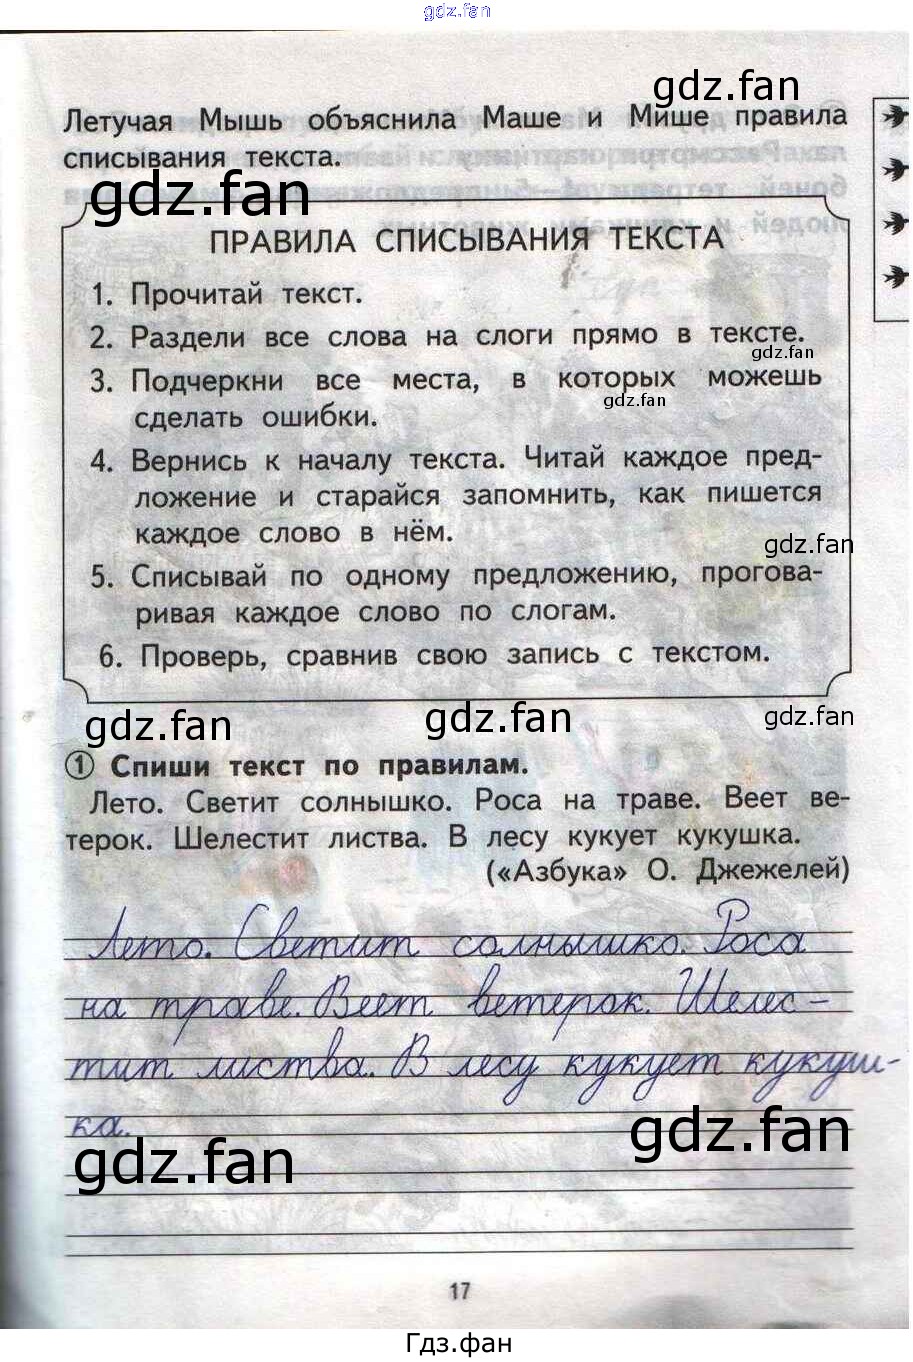 gdz.fan
gdz.fan
Летучая Мышь объяснила Маше и Мише правила
списывания текста.
gdz.fan
ПРАВИЛА СПИСЫВАНИЯ ТЕКСТА
1. Прочитай текст.
2. Раздели все слова на слоги прямо в тексте.
gdz.fan
3. Подчеркни все места, в которых можешь
gdz.fan
сделать ошибки.
4. Вернись к началу текста. Читай каждое пред-
ложение и старайся запомнить, как пишется
каждое слово в нём.
gdz.fan
5. Списывай по одному предложению, прогова-
ривая каждое слово по слогам.
6. Проверь, сравнив свою запись с текстом.
gdz.fan gdz.fan gdz.fan
1 Спиши текст по правилам.
Лето. Светит солнышко. Роса на траве. Веет ве-
терок. Шелестит листва. В лесу кукует кукушка.
(«Азбука» О. Джежелей)
Лето. Светит солнышко. Роса
на траве. Веет ветерок. Шелес-
тит листва. В лесу кукует кукуш-
ка.
gdz.fan gdz.fan
17
Гдз.фан